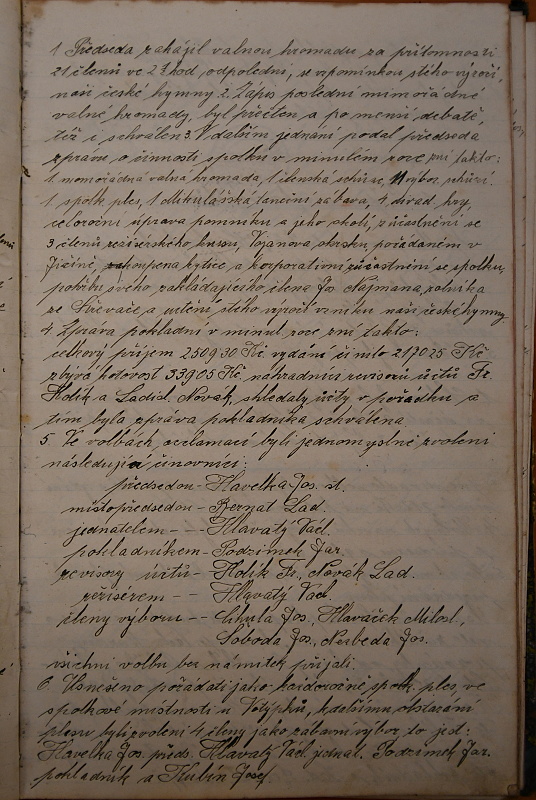 1 Předseda zahájil valnou hromadu za přítomnosti
21 členů ve 2 hod. odpolední, se vzpomínkou stého výročí,
naší české hymny 2. Zápis poslední mimořádné
valné hromady, byl přečten a po menší debatě,
též i schválen 3. V dalším jednání podal předseda
zprávu o činnosti spolku v minulém roce zní takto:
1 mimořádná valná hromada, 1 členská schůze, 11 výbor. schůzí.
1 spolk. ples, 1 divadelní taneční zábava, 4 divad. hry,
celoroční úprava pomníku a jeho okolí, zúčastnění se
3 členů režisérského kursu, Vojanova okrsku, pořádaném v
Jičíně, zakoupena kytice a korporativní zúčastnění se spolku,
pohřbu svého zakládajícího člena Jos. Najmana, rolníka
ze Střevače a uctění stého výročí vzniku naší české hymny
4. Zpráva pokladní v minul. roce zní takto:
celkový příjem 2509.30 Kč vydání činilo 2170.25 Kč
zbývá hotovost 339.05 Kč. náhradníci revisorů účtů Fr.
Holík a Ladisl. Novák, shledaly účty v pořádku a
tím byla zpráva pokladníka schválena
5. Ve volbách, acclamací byli jednomyslně zvoleni
následující činovníci:
předsedou - Havelka Jos. st.
místopředsedou - Bernat Lad.
jednatelem - - Hlavatý Václ.
pokladníkem - Podzimek Jar.
revisory účtů - Holík Fr., Novák Lad.
režiserem - - Hlavatý Václ.
členy výboru - - Cihula Jos., Hlaváček Milosl.,
Svoboda Jos., Nezbeda Jos.
všichni volbu bez námitek přijali.
6. Usneseno pořádati jako každoročně spolk. ples, ve
spolkové místnosti u Votýpků, k dalšímu obstarání
plesu byli zvoleni 4 členy jako zábavní výbor, to jest:
Havelka Jos. předs. Hlavatý Václ. jednat. Podzimek Jar.
pokladník a Kubín Josef.